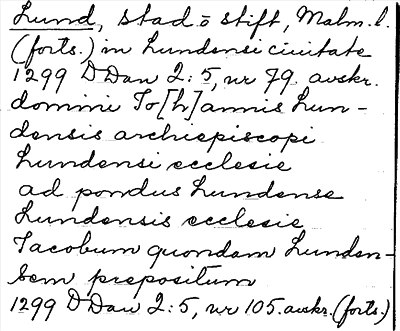 Lund, stad o stift, Malm. l.
(forts.) in Lundensi ciuitate
1299 D Dan 2:5, nr 79. avskr.
domini Io[h]annis Lun-
densis archiepiscopi
Lundensi ecclesie
ad pondus Lundense
Lundensis ecclesie
Iacobum quondam Lunden-
sem prepositum
1299 D Dan 2:5, nr 105. avskr. (forts.)